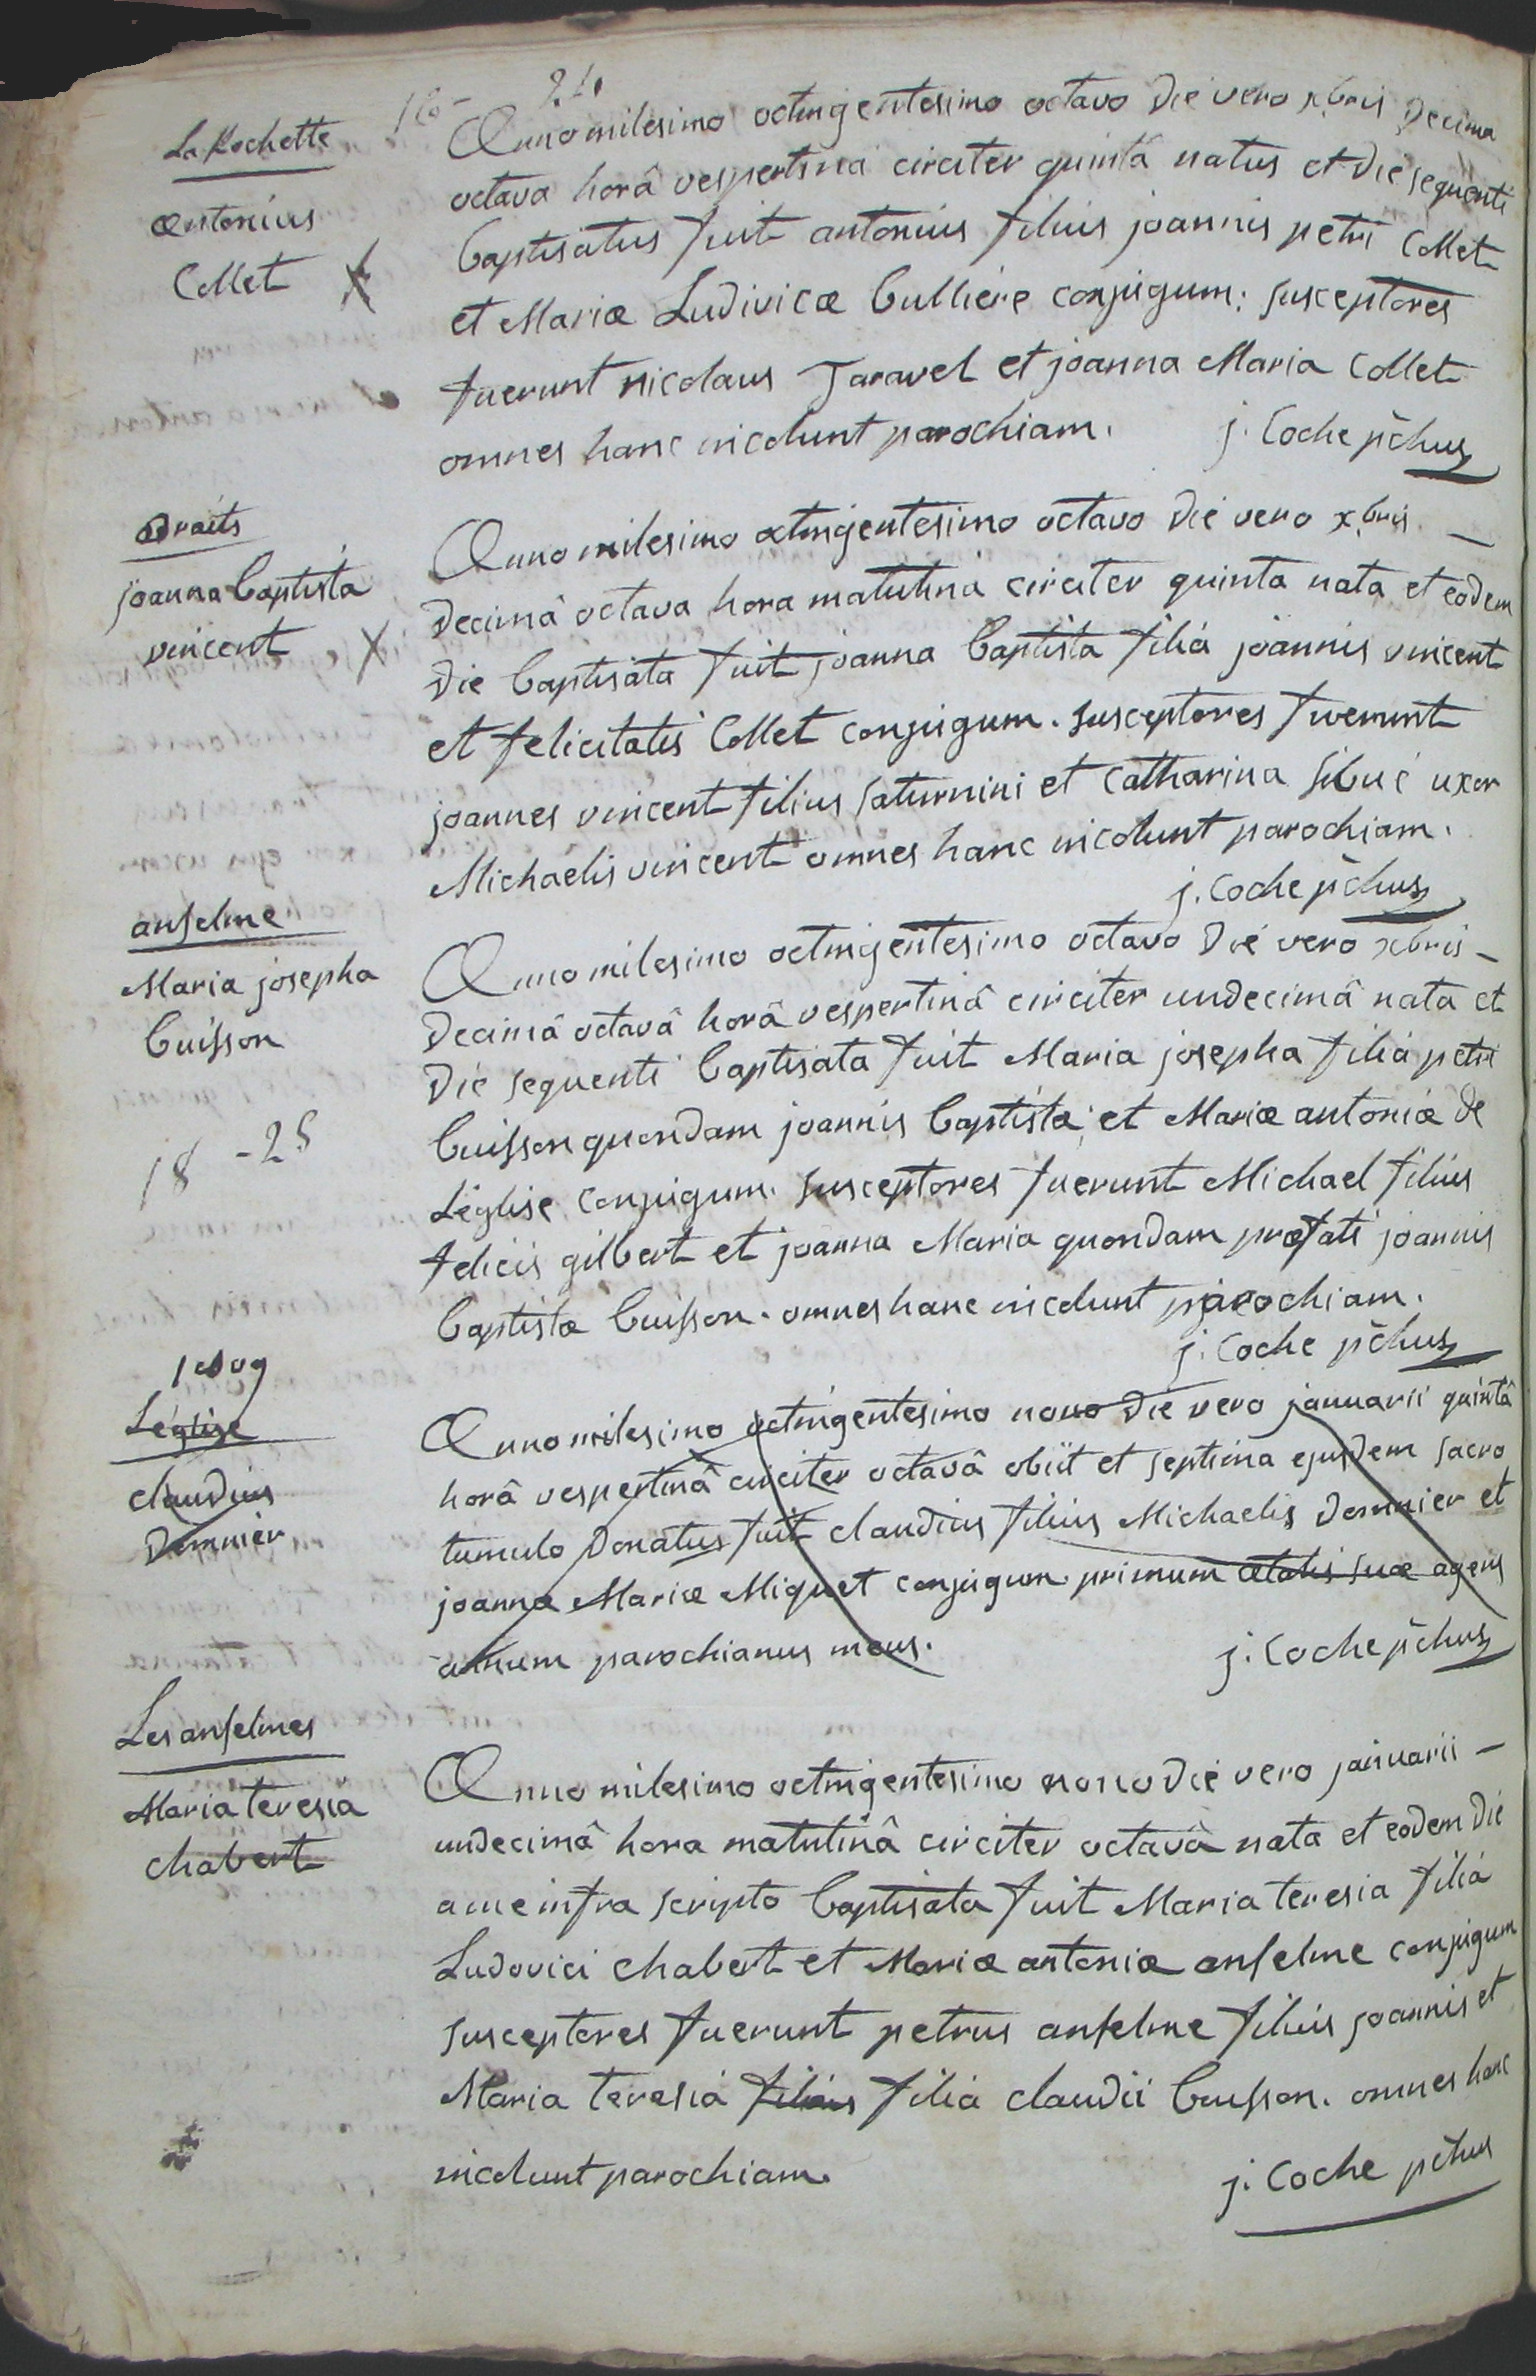 210
La Rochette
antonius
Collet X
Anno milesimo octingentesimo octavo die vero xbris decima
octava horâ vespertina circiter quintâ natus et die sequenti
baptisatus fuit antonius filius joannis petri Collet
et Mariæ Ludivicæ bulliere conjugum: susceptores
fuerunt nicolaus Jaravel et joanna Maria Collet
omnes hanc incolunt parochiam.
j. Coche pchus
draits
joanna baptista
vincent X
Anno milesimo octingentesimo octavo die vero xbris —
decimâ octava hora matutina circiter quinta nata et eodem
die baptisata fuit joanna baptista filia joannis vincent
et felicitatis Collet conjugum. susceptores fuerunt
joannes vincent filius saturnini et catharina sibué uxor
Michaelis vincent omnes hanc incolunt parochiam.
j. Coche pchus
anselme
Maria josepha
buisson
18 - 25
Anno milesimo octingentesimo octavo die vero xbris —
decimâ octavâ horâ vespertinâ circiter undecimâ nata et
die sequenti baptisata fuit Maria josepha filia petri
buisson quondam joannis baptistæ et Mariæ antoniæ de
Léglise conjugum. susceptores fuerunt Michael filius
felicis gilbert et joanna Maria quondam præfati joannis
baptistæ buisson. omnes hanc incolunt parochiam.
j. Coche pchus
1809
Léglise
claudius
domnier
Anno milesimo octingentesimo nono die vero januarii quintâ
horâ vespertinâ circiter octavâ obiit et septima ejusdem sacro
tumulo donatus fuit claudius filius Michaelis domnier et
joannæ Mariæ Miquet conjugum primum ætatis suæ agens
annum parochianus meus.
j. Coche pchus
Les anselmes
Maria teresia
chabert
Anno milesimo octingentesimo nono die vero januarii —
undecimâ hora matutinâ circiter octavâ nata et eodem die
a me infra scripto baptisata fuit Maria teresia filia
Ludovici chabert et Mariæ antoniæ anselme conjugum
susceptores fuerunt petrus anselme filius joannis et
Maria teresia filius filia claudii buisson. omnes hanc
incolunt parochiam.
j. Coche pchus